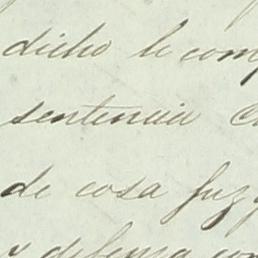 dicho le com
sentencia
de cosa juzg
y defensa con